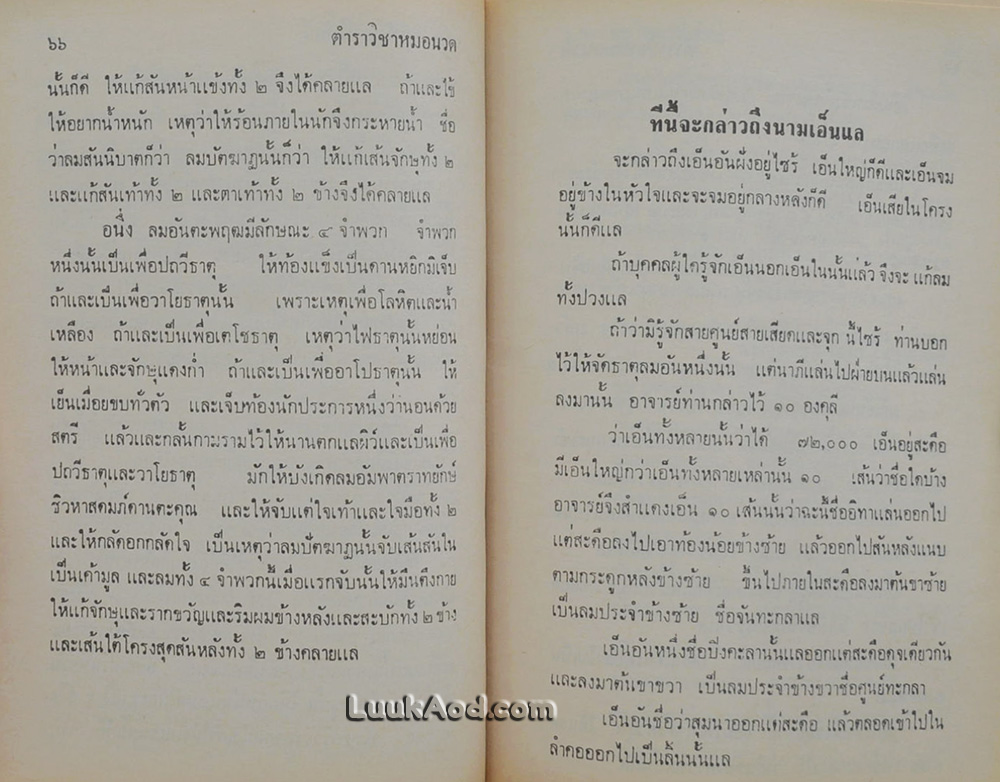 ๖๖ ตำราวิชาหมอนวด
นั้นก็ดี ให้แก้สันหน้าแข้งทั้ง ๒ จึงได้คลายแล ถ้าและใช้
ให้อยากน้ำหนัก เหตุว่าให้ร้อนภายในนักจึงกระหายน้ำ ชื่อ
ว่าลมสันนิบาตก็ว่า ลมปัตฆาฏนั้นก็ว่า ให้แก้เส้นจักษุทั้ง ๒
และแก้สันเท้าทั้ง ๒ และตาเท้าทั้ง ๒ ข้างจึงได้คลายแล
อนึ่ง ลมอันตะพฤฒมีลักษณะ ๔ จำพวก จำพวก
หนึ่งนั้นเป็นเพื่อปถวีธาตุ ให้ท้องแข็งเป็นดานหยิกมิเจ็บ
ถ้าและเป็นเพื่อวาโยธาตุนั้น เพราะเหตุเพื่อโลหิตและน้ำ
เหลือง ถ้าและเป็นเพื่อเตโชธาตุ เหตุว่าไฟธาตุนั้นหย่อน
ให้หน้าและจักษุแดงก่ำ ถ้าและเป็นเพื่ออาโปธาตุนั้น ให้
เย็นเมื่อยขบทั่วตัว และเจ็บท้องนักประการหนึ่งว่านอนด้วย
สตรี แล้วและกลั้นกามรามไว้ให้นานตกแลผิว์และเป็นเพื่อ
ปถวีธาตุและวาโยธาตุ มักให้บังเกิดลมอัมพาตราทยักษ์
ชิวหาสดมภ์ดานตะคุณ และให้จับแต่ใจเท้าและใจมือทั้ง ๒
และให้กลัดอกกลัดใจ เป็นเหตุว่าลมปัตฆาฏนั้นจับเส้นสันใน
เป็นเค้ามูล และลมทั้ง ๔ จำพวกนี้เมื่อแรกจับนั้นให้มึนตึงกาย
ให้แก้จักษุและรากขวัญและริมผมข้างหลังและสะบักทั้ง ๒ ข้าง
และเส้นใต้โครงสุดสันหลังทั้ง ๒ ข้างคลายแล
ทีนี้จะกล่าวถึงนามเอ็นแล
จะกล่าวถึงเอ็นอันฝังอยู่ไซร้ เอ็นใหญ่ก็ดีและเอ็นจม
อยู่ข้างในหัวใจและจะจมอยู่กลางหลังก็ดี เอ็นเสียในโครง
นั้นก็ดีแล
ถ้าบุคคลผู้ใดรู้จักเอ็นนอกเอ็นในนั้นแล้ว จึงจะ แก้ลม
ทั้งปวงแล
ถ้าว่ามิรู้จักสายศูนย์สายเสียดและจุก นี้ไซร้ ท่านบอก
ไว้ให้จัดธาตุลมอันหนึ่งนั้น แต่นาภีแล่นไปฝ่ายบนแล้วแล่น
ลงมานั้น อาจารย์ท่านกล่าวไว้ ๑๐ องคุลี
ว่าเอ็นทั้งหลายนั้นว่าได้ ๗๒,๐๐๐ เอ็นอยู่สะดือ
มีเอ็นใหญ่กว่าเอ็นทั้งหลายเหล่านั้น ๑๐ เส้นว่าชื่อใดบ้าง
อาจารย์จึงสำแดงเอ็น ๑๐ เส้นนั้นว่าฉะนี้ชื่ออิทาแล่นออกไป
แต่สะดือลงไปเอาท้องน้อยข้างซ้าย แล้วออกไปสันหลังแนบ
ตามกระดูกหลังข้างซ้าย ขึ้นไปภายในสะดือลงมาต้นขาซ้าย
เป็นลมประจำข้างซ้าย ชื่อจันทะกลาแล
เอ็นอันหนึ่งชื่อปิงคะลานั้นแลออกแต่สะดือดุจเดียวกัน
และลงมาต้นขาขวา เป็นลมประจำข้างขวาชื่อศูนย์ทะกลา
เอ็นอันชื่อว่าสุมนาออกแต่สะดือ แล้วตลอดเข้าไปใน
ลำคอออกไปเป็นลิ้นนั้นแล
LuukAod.com